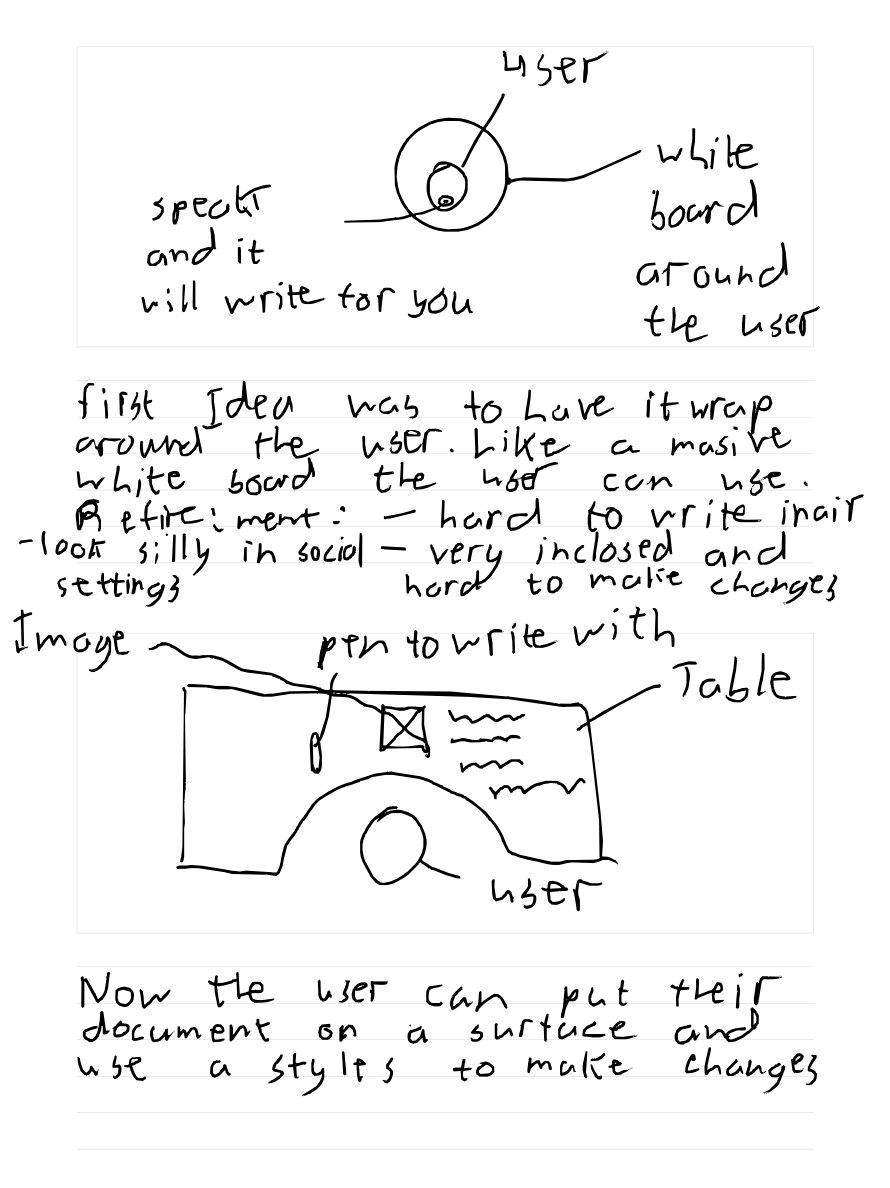 user
white
board
around
the user
speak
and it
will write for you
first Idea was to have it wrap
around the user. Like a masive
white board the user can use.
Refire:ment: - hard to write inair
-look silly in social - very inclosed and
settings hard to make changes
Image
pen to write with
Table
user
Now the user can put their
document on a surface and
use a styles to make changes